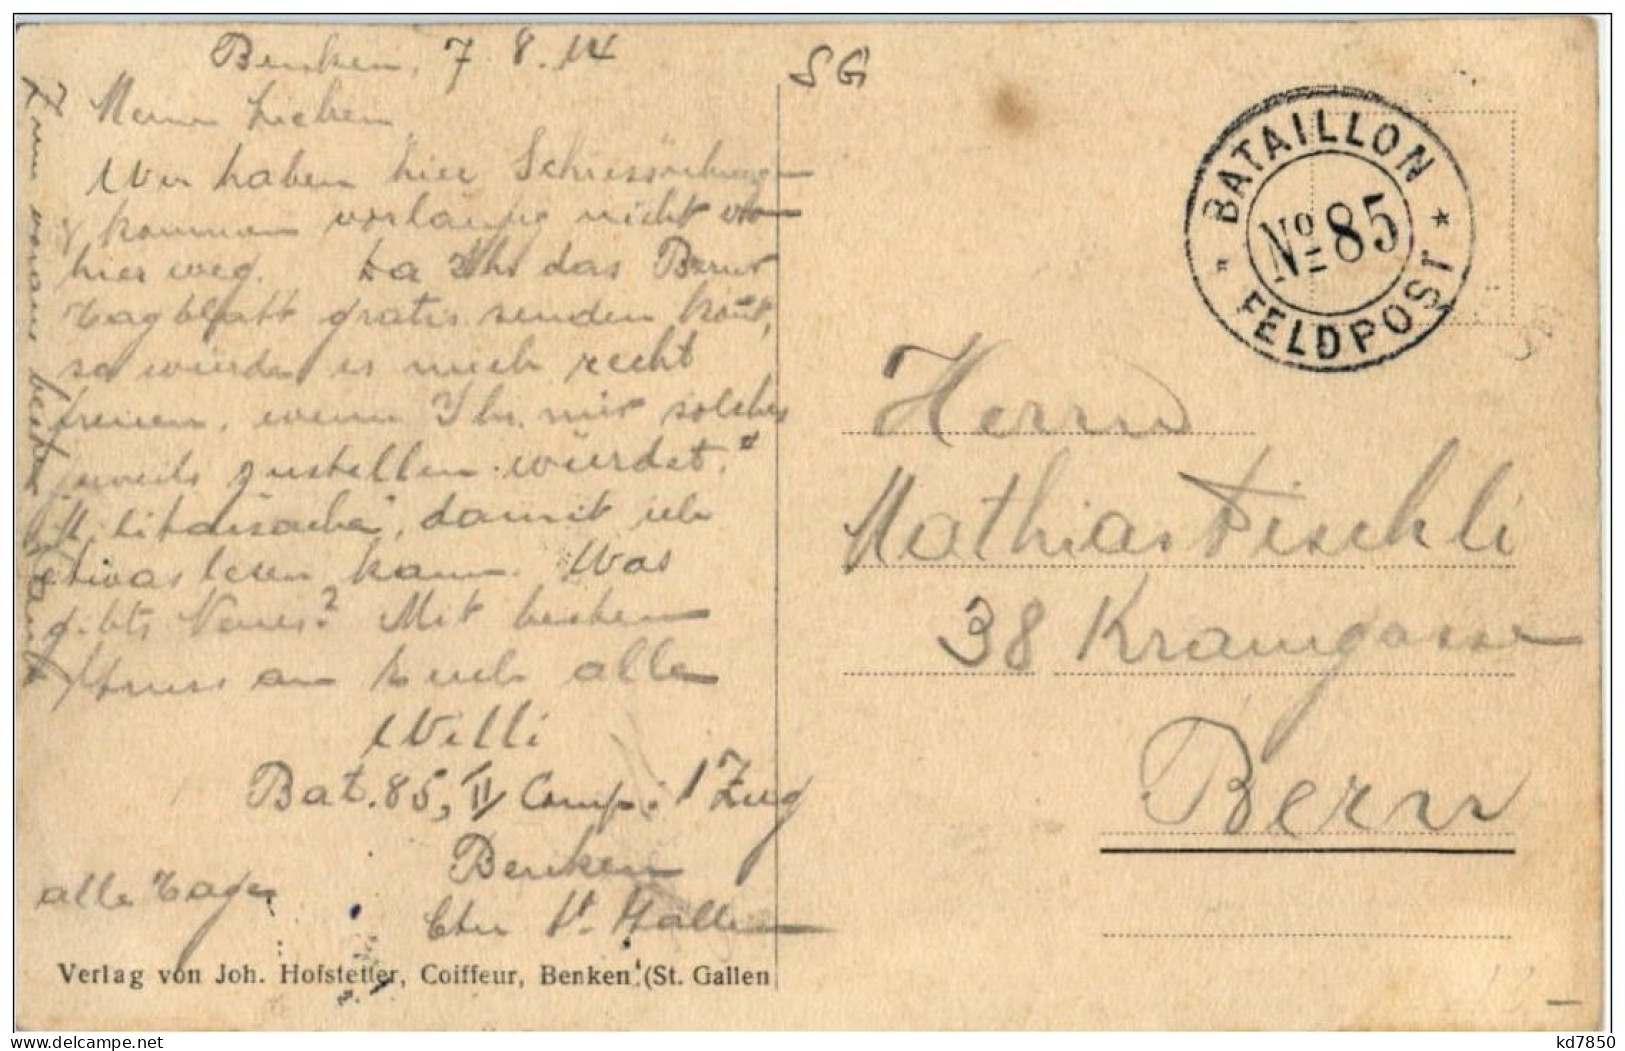 Benken, 7. 8. 14
Meine Lieben,
Wir haben hier Schiessübungen
& kommen vorläufig nicht von
hier weg. Da Ihr das Berner
Tagblatt gratis senden könnt,
so würde es mich recht
freuen, wenn Ihr mir solches
jeweils zustellen würdet.
"Militärsache", damit ich
etwas lesen kann. Was
gibts Neues? Mit bestem
Gruss an Euch alle
Willi
Bat. 85, II Comp. 1 Zug
Benken
Ctn St. Gallen
alle Tage
Zum voraus besten Dank
Verlag von Joh. Hofstetter, Coiffeur, Benken (St. Gallen
SG
BATAILLON
No 85
FELDPOST
Herrn
Mathias Fischli
38 Kramgasse
Bern
kd7850